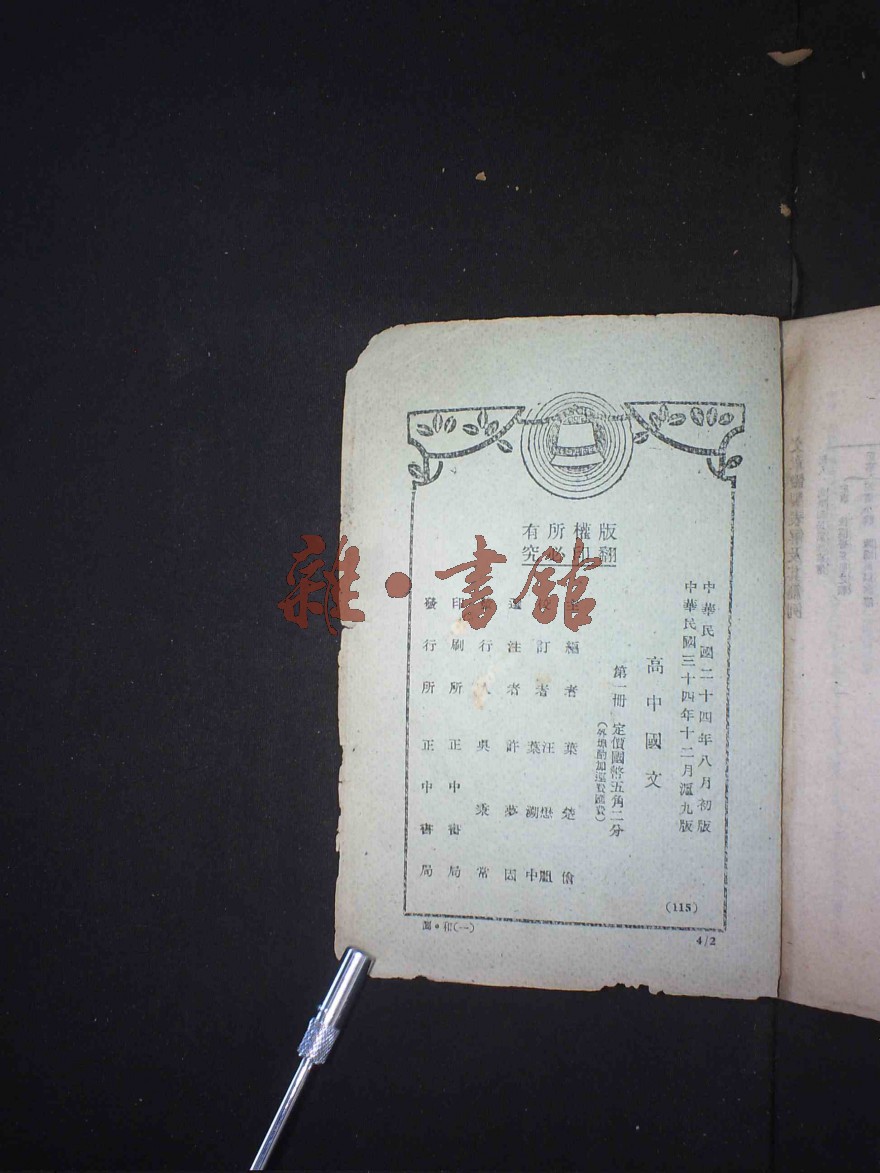 版權所有
翻印必究
中華民國二十四年八月初版
中華民國三十四年十二月滬九版
高中國文
第一冊 定價國幣五角二分
(外埠酌加運費匯費)
編者 葉楚傖
訂者 汪懋祖
葉溯中
注者 許夢因
行人 吳秉常
印刷所 正中書局
發行所 正中書局
(115)
(一)
4/2
雜·書館